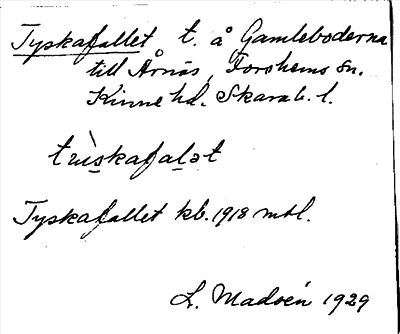 Tyskafallet t. å Gamleboderna
till Årnäs, Forshems sn.
Kinne hd. Skarab. l.
Tyskafallet kb. 1918 mtl.
L. Madsén 1929